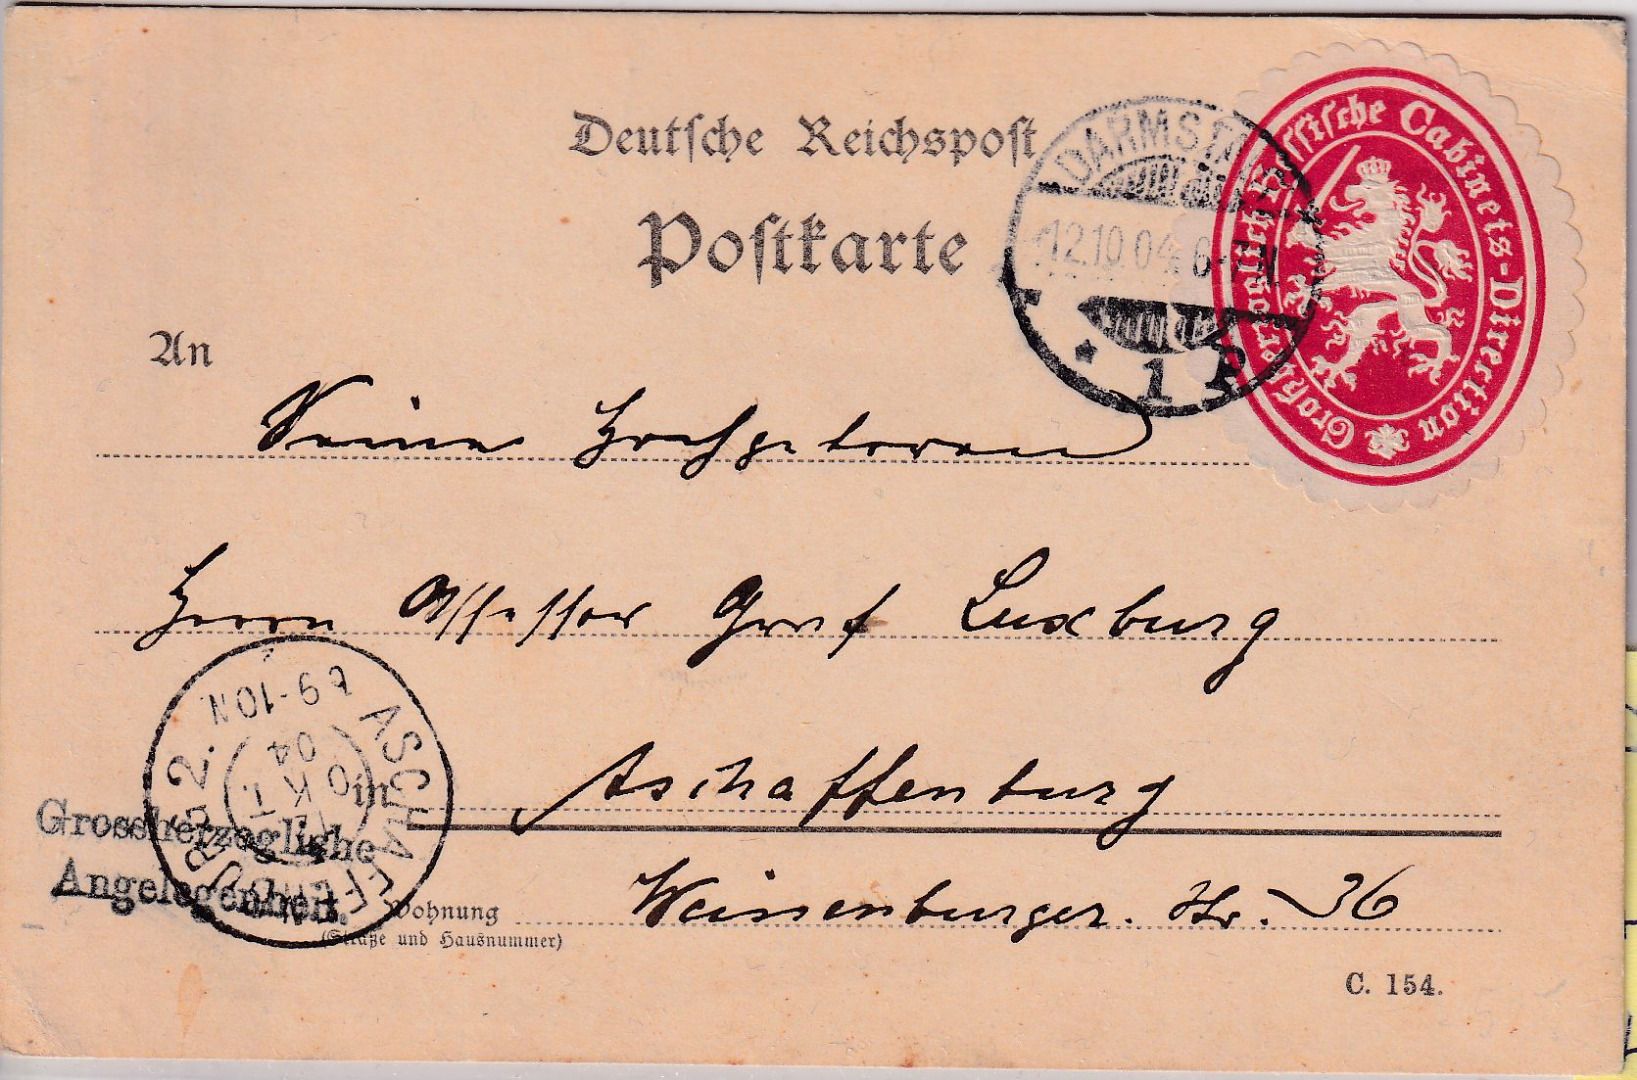 Deutsche Reichspost
Postkarte
DARMSTADT
12.10.04 6-7N
* 1 P
Großherzoglich Hessische Cabinets-Direction
An
Seine Hochgeboren
Herrn Assessor Graf Luxburg
in Aschaffenburg
Grossherzogliche
Angelegenheit.
ASCHAFFENBURG 2.
OKT.
04
9-10N
Wohnung
(Straße und Hausnummer)
Weissenburger. Str. 36
C. 154.